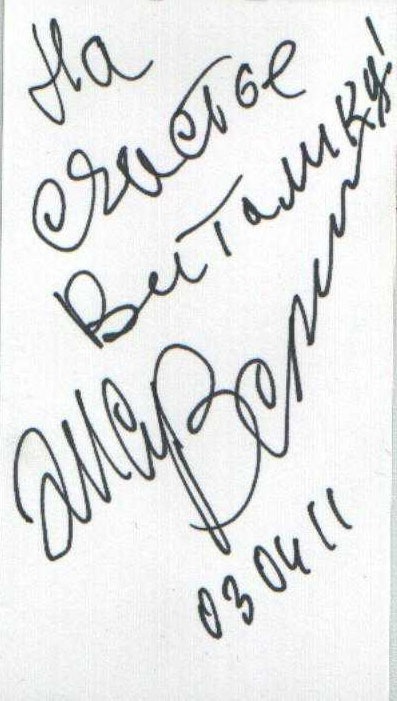 На
счастье
Виталику!
03 04 11